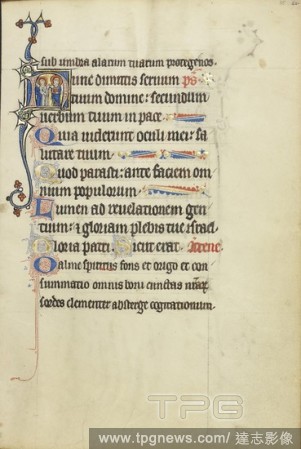 sub umbra alarum tuarum protege nos.
Nunc dimittis seruum ps
tuum domine: secundum
uerbum tuum in pace
Quia uiderunt oculi mei: sa
lutare tuum
Quod parasti: ante faciem om
nium populorum
Lumen ad reuelationem gen
tium: & gloriam plebis tue israel
Gloria patri. Sicut erat.
Alme spiritus fons et origo et con
summatio omnis boni cunctas
sordes clementer absterge cogitationum.
TPG
www.tpgnews.com/達志影像